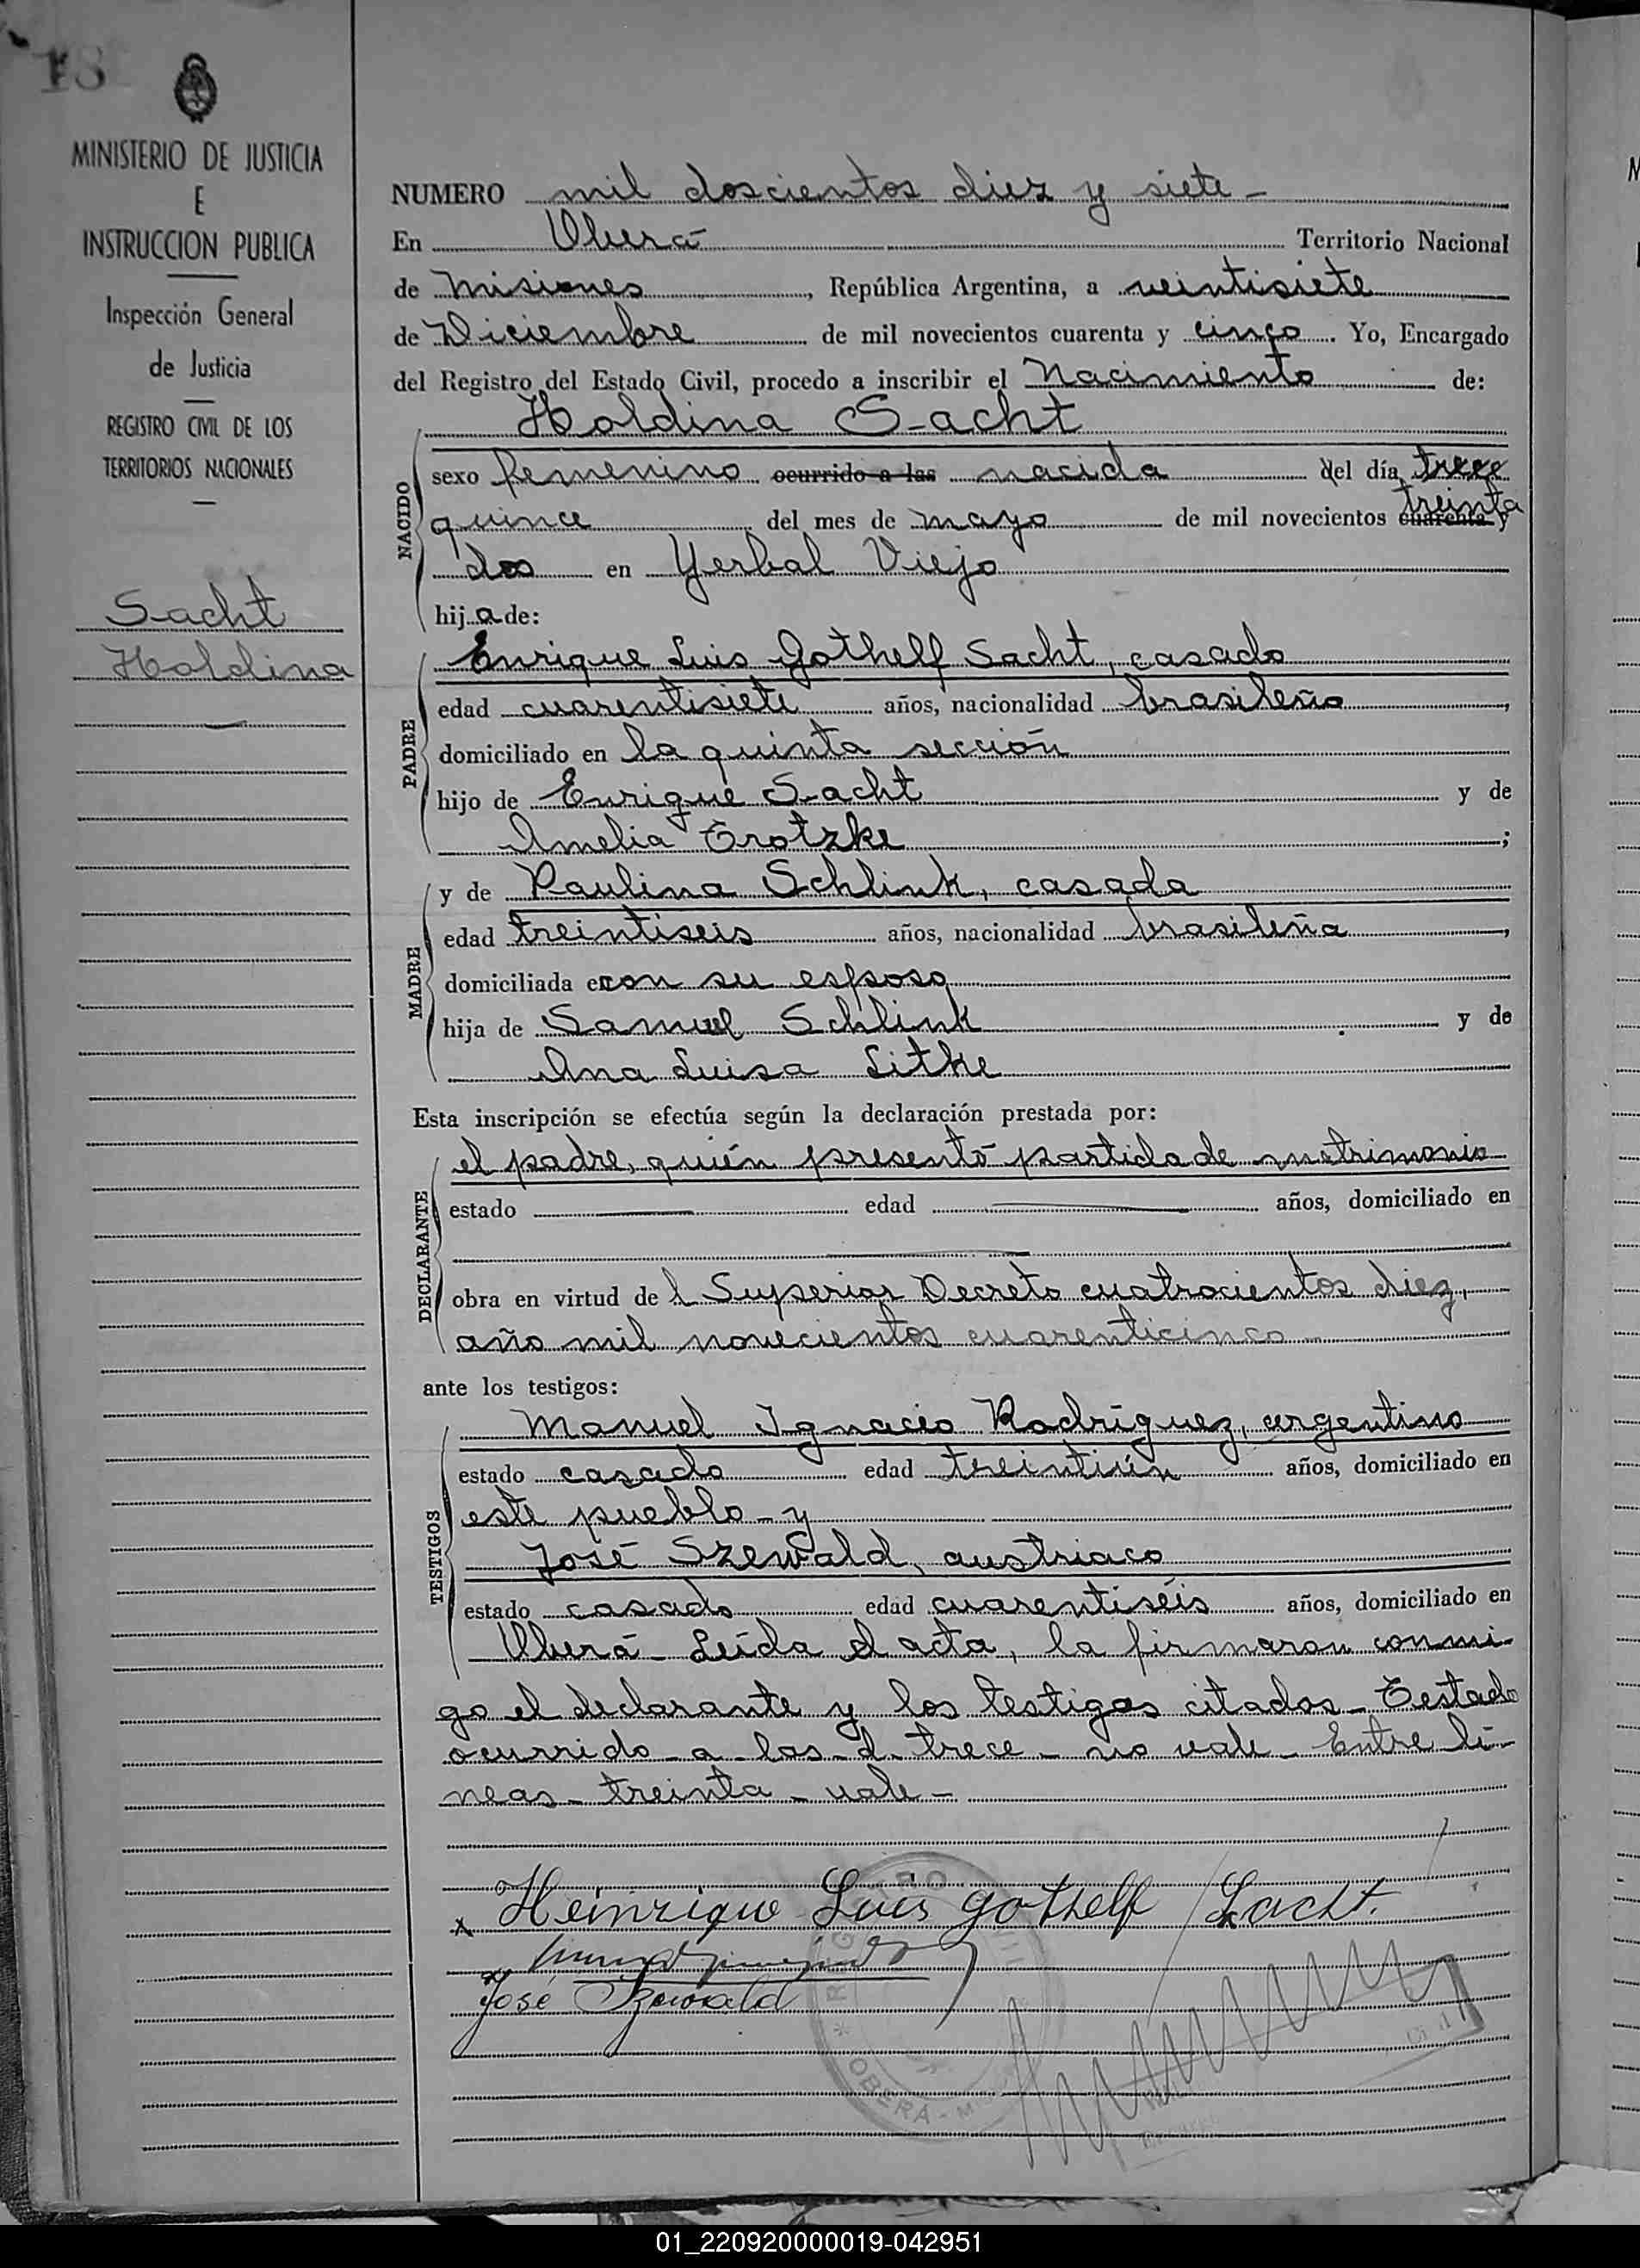 18
MINISTERIO DE JUSTICIA
E
INSTRUCCION PUBLICA
Inspección General
de Justicia
REGISTRO CIVIL DE LOS
TERRITORIOS NACIONALES
Sacht
Holdina
NUMERO mil doscientos diez y siete -
En Oberá Territorio Nacional
de Misiones, República Argentina, a veintisiete
de Diciembre de mil novecientos cuarenta y cinco. Yo, Encargado
del Registro del Estado Civil, procedo a inscribir el Nacimiento de:
Holdina Sacht
NACIDO
sexo femenino ocurrido a las nacida del día trece
treinta
quince del mes de mayo de mil novecientos cuarenta y
dos en Yerbal Viejo
hija de:
PADRE
Enrique Luis Gothelf Sacht, casado
edad cuarentisiete años, nacionalidad brasileño,
domiciliado en la quinta sección
hijo de Enrique Sacht y de
Amelia Crotzke;
MADRE
y de Paulina Schlink, casada
edad treintiseis años, nacionalidad brasileña,
domiciliada con su esposo
hija de Samuel Schlink y de
Ana Luisa Litke
Esta inscripción se efectúa según la declaración prestada por:
DECLARANTE
el padre, quién presentó partida de matrimonio
estado edad años, domiciliado en
obra en virtud del Superior Decreto cuatrocientos diez,
año mil novecientos cuarenticinco
ante los testigos:
TESTIGOS
Manuel Ignacio Rodríguez, argentino
estado casado edad treintiún años, domiciliado en
este pueblo - y
José Szewald, austriaco
estado casado edad cuarentiséis años, domiciliado en
Oberá - Leída el acta, la firmaron conmi-
go el declarante y los testigos citados - Testado
ocurrido - a - las - d - trece - no vale - Entre lí-
neas - treinta - vale -
x Heinrique Luis Gothelf Sacht.
José Szewald
OBERÁ -
01_220920000019-042951